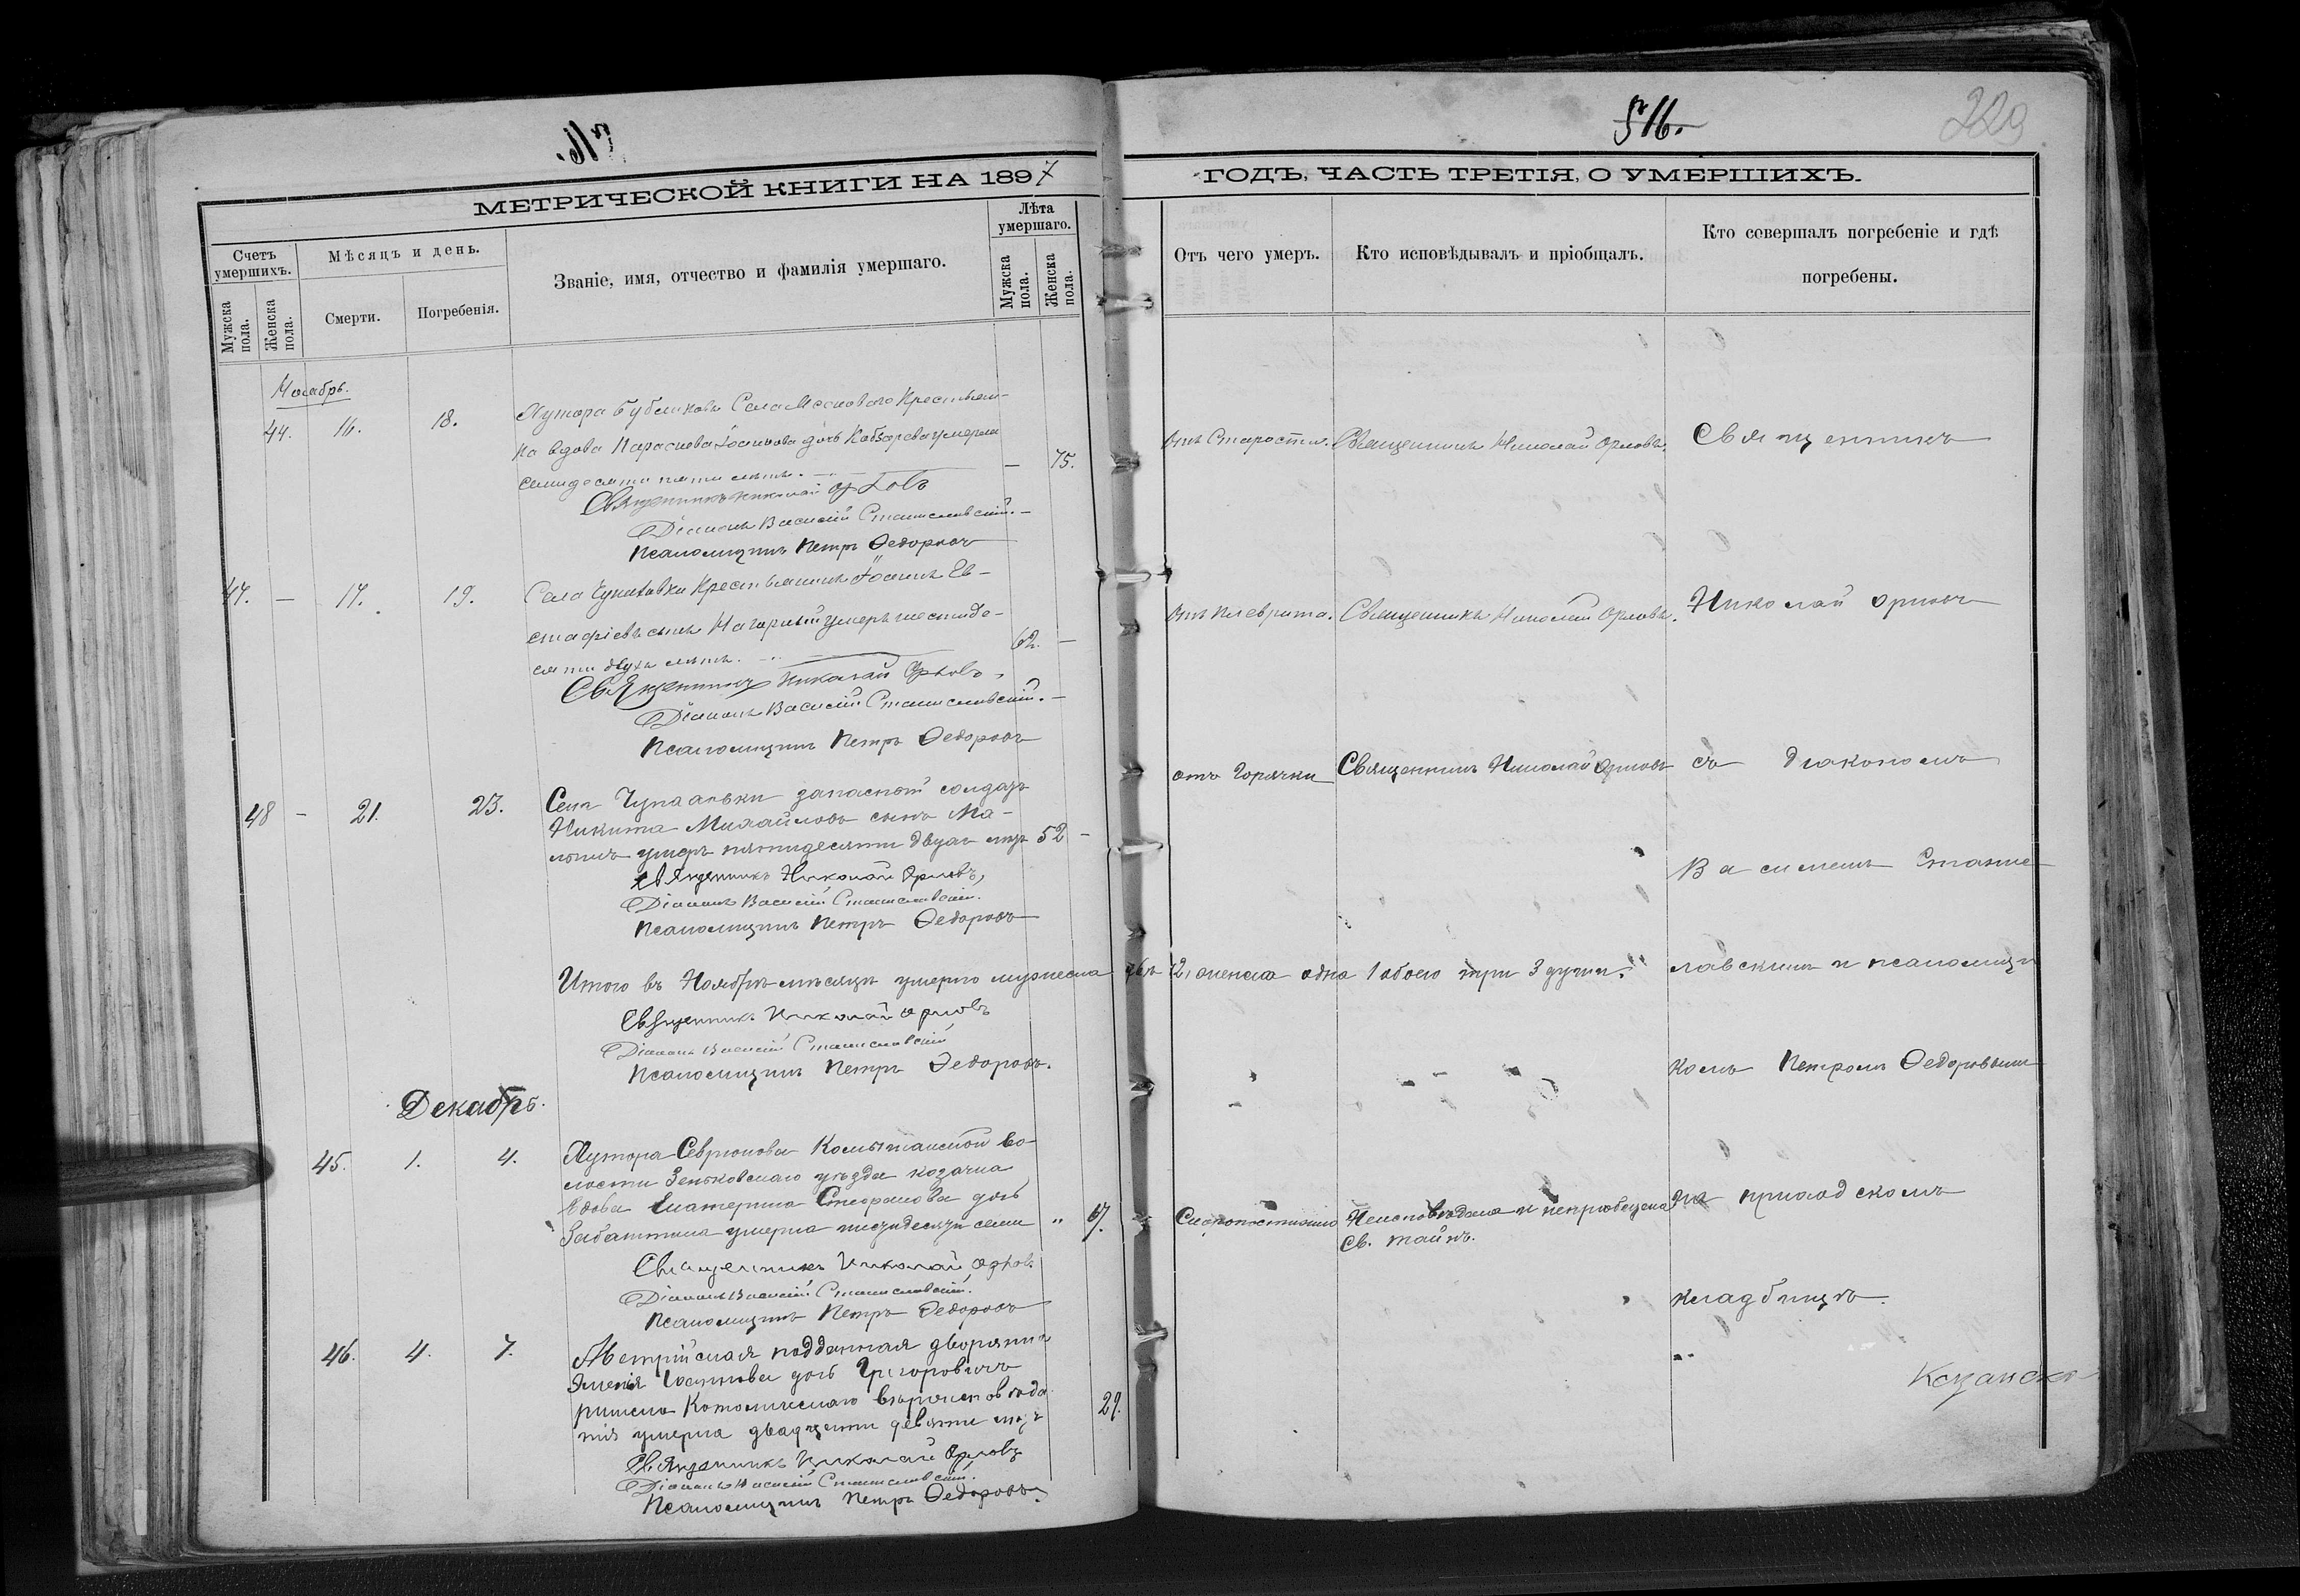 516.
229
МЕТРИЧЕСКОЙ КНИГИ НА 1897
ГОДЪ, ЧАСТЬ ТРЕТІЯ, О УМЕРШИХЪ.
Счетъ умершихъ.
Мужска пола.
Женска пола.
Мѣсяцъ и день.
Смерти.
Погребенія.
Званіе, имя, отчество и фамилія умершаго.
Лѣта умершаго.
Мужска пола.
Женска пола.
Отъ чего умеръ.
Кто исповѣдывалъ и пріобщалъ.
Кто совершалъ погребеніе и гдѣ
погребены.
Ноябрь.
44. 16. 18. Хутора Бубликова Села Крестьян-
ка вдова Параскева Іоаннова дочь Кобзарева умерла
семидесяти пяти лѣтъ. — 75.
Отъ Старости. Священникъ Николай Орловъ. Священникъ
Священникъ Николай Орловъ
Діаконъ Василій Станиславскій.
Псаломщикъ Петръ Ѳедоровъ
47. — 17. 19. Села Чупаховки Крестьянинъ Іоаннъ Ев-
стафіевъ сынъ Нагорный умеръ шестиде-
сяти двухъ лѣтъ. 62. —
Отъ плеврита. Священникъ Николай Орловъ. Николай Орловъ
Священникъ Николай Орловъ,
Діаконъ Василій Станиславскій.
Псаломщикъ Петръ Ѳедоровъ
48 — 21. 23. Села Чупаховки запасный солдатъ
Никита Михайловъ сынъ Ма-
умеръ пятидесяти двухъ лѣтъ 52 —
отъ горячки Священникъ Николай Орловъ съ діакономъ
Священникъ Николай Орловъ,
Діаконъ Василій Станиславскій.
Псаломщикъ Петръ Ѳедоровъ
Василіемъ Станис
Итого въ Ноябрѣ мѣсяцѣ умерло мужеска два 2, женска одна 1 обоего три 3 души.
лавскимъ и псаломщи
Священникъ Николай Орловъ
Діаконъ Василій Станиславскій
Псаломщикъ Петръ Ѳедоровъ.
комъ Петромъ Ѳедоровымъ
Декабрь.
45. 1. 4. Хутора Севрюкова во-
лости Зеньковскаго уѣзда козачка
вдова Екатерина дочь
умерла шестидесяти семи " 67.
Скоропостижно Неисповѣдана и непріобщена
Св. Тайнъ.
на приходскомъ
Священникъ Николай Орловъ
Діаконъ Василій Станиславскій.
Псаломщикъ Петръ Ѳедоровъ
кладбищѣ.
46. 4. 7. Австрійская подданная дворянка
Іоаннова дочь Григоровичъ
римско Католическаго вѣроисповѣда
нія умерла двадцати девяти лѣтъ 29.
Священникъ Николай Орловъ
Діаконъ Василій Станиславскій.
Псаломщикъ Петръ Ѳедоровъ.